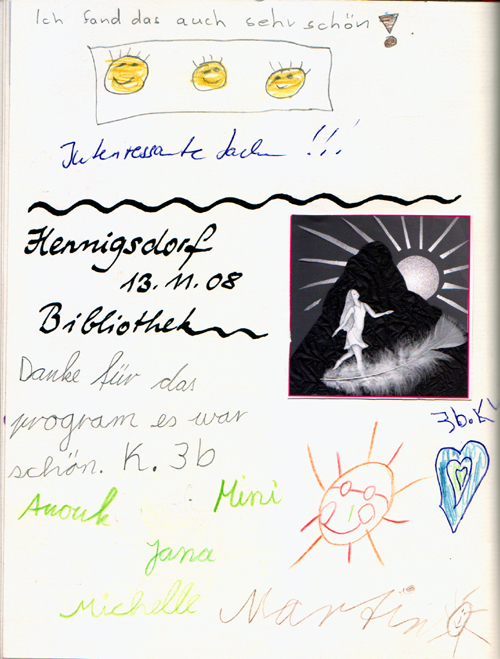 Ich fand das auch sehr schön!
Interessante Sachen !!!
Hennigsdorf
13.11.08
Bibliothek
Danke für das
program es war
schön. K. 3b
3b.Kl
Anouk
Mimi
Jana
Michelle
Martin